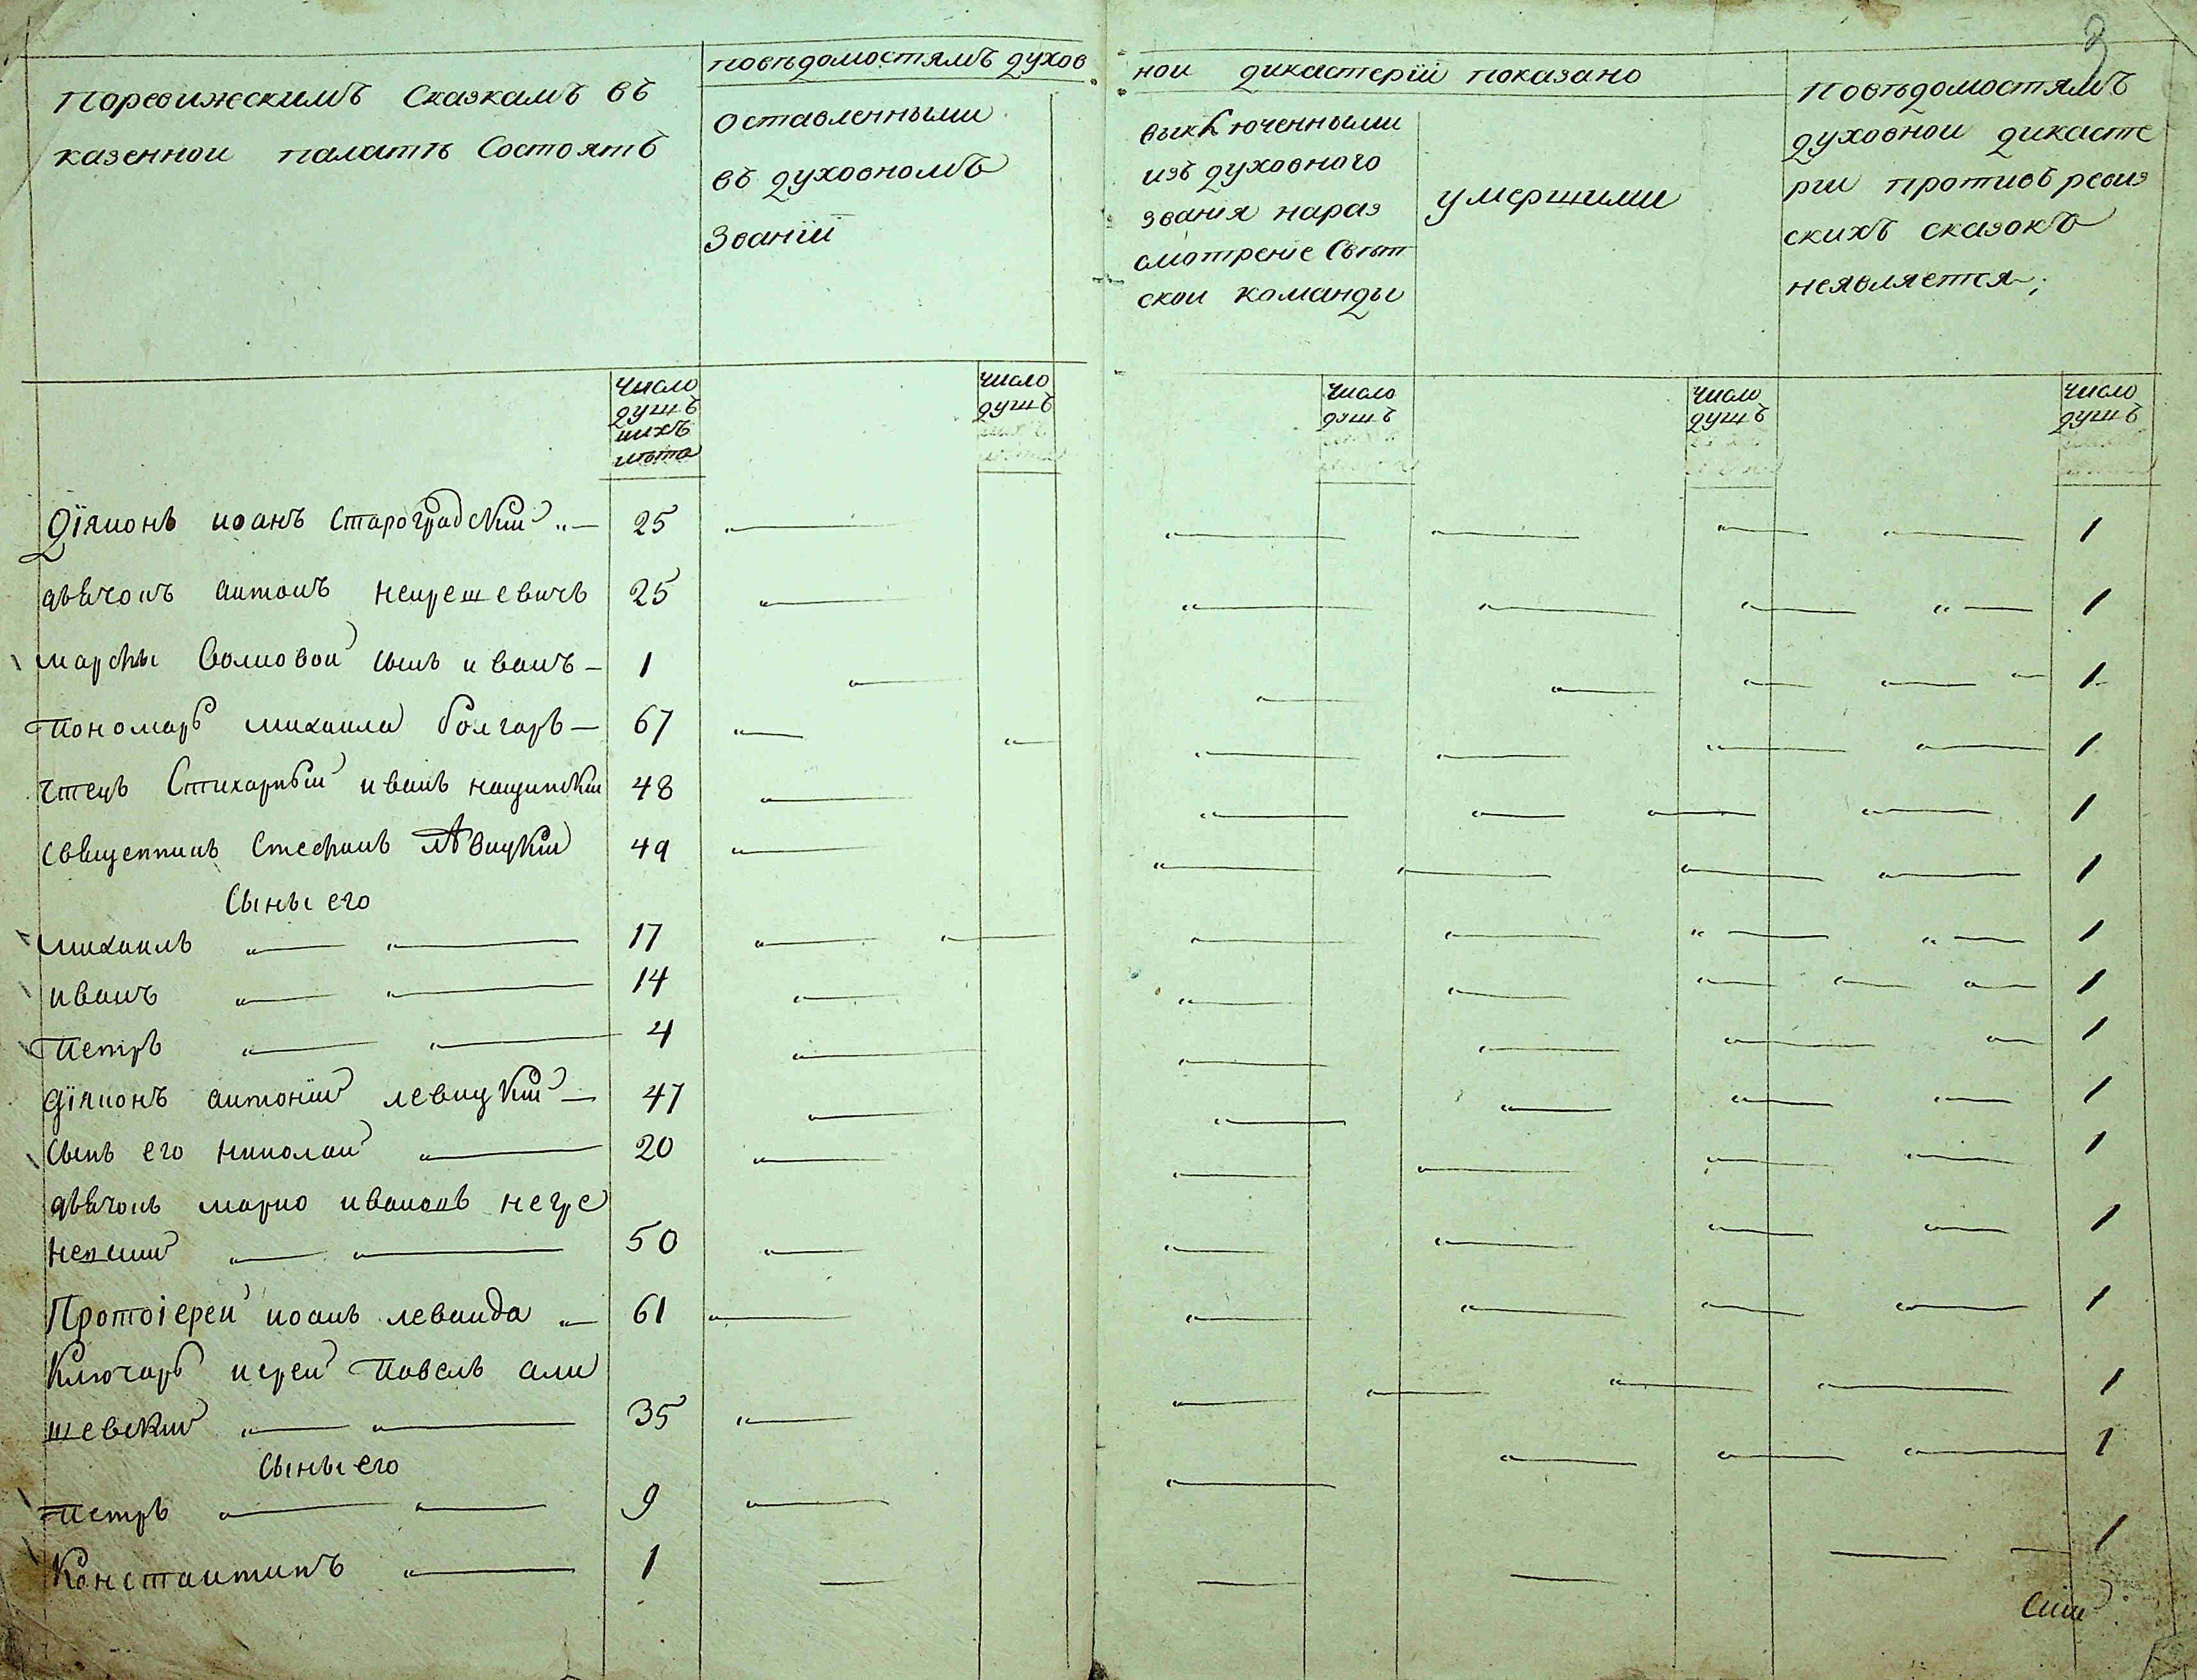 3
Поревижскимъ Сказкамъ въ
казеннои палатѣ Состоятъ
повѣдомостямъ духов
нои дикастерїи показано
оставленными
въ духовномъ
Званїи
выключенными
изъ духовного
званія нараз
смотреніе Свѣт
скои команды
умершими
Повѣдомостямъ
духовнои дикасте
рии противъ ревиз
скихъ сказокъ
неявляется;
число
душъ
ихъ
лѣта
число
душъ
число
душъ
число
душъ
число
душъ
Діяконъ иоанъ Староградскии 25 1
дьячокъ антонъ 25 1
марфы Волковои сынъ иванъ 1 1
Пономарь михаила болгаръ 67 1
чтецъ Стихарный иванъ нащинскии 48 1
священникъ Стефанъ лѣвицкии 49 1
Сыны его
михаилъ 17 1
иванъ 14 1
Петръ 4 1
діяконъ антонїи левицкии 47 1
сынъ его николаи 20 1
дьячокъ марко ивановъ
50 1
Протоіереи иоанъ леванда 61 1
Ключарь иереи Павелъ али
шевскии 35 1
Сыны его
Петръ 9 1
Константинъ 1 1